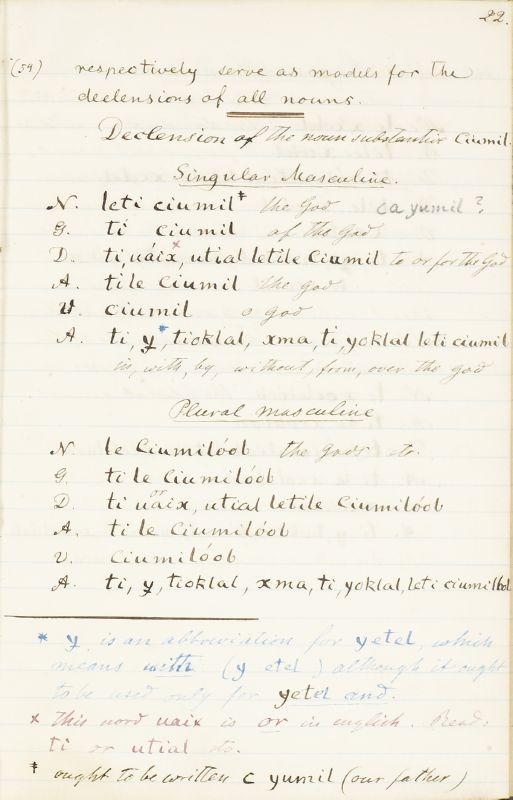 22.
(54) respectively serve as models for the
declensions of all nouns.
Declension of the noun substantive Ciumil.
Singular Masculine.
N. leti ciumil‡ the God ca yumil ?
G. ti ciumil of the God
D. ti, uáix,× utial letile Ciumil to or for the God
A. tile Ciumil the god
V. ciumil o god
A. ti, y,* tioklal, xma, ti, yoklal leti ciumil
in, with, by, without, from, over the god
Plural masculine
N. le Ciumilóob the gods etc.
G. ti le Ciumilóob
D. ti uáix, or utial letile Ciumilóob
A. ti le Ciumilóob
V. Ciumilóob
A. ti, y, tioklal, xma, ti, yoklal, leti ciumilóob
* y, is an abbreviation for yetel, which
means with (y etel) although it ought
to be used only for yetel and.
× this word uaix is or in english. Read:
ti or utial etc.
‡ ought to be written c yumil (our father)